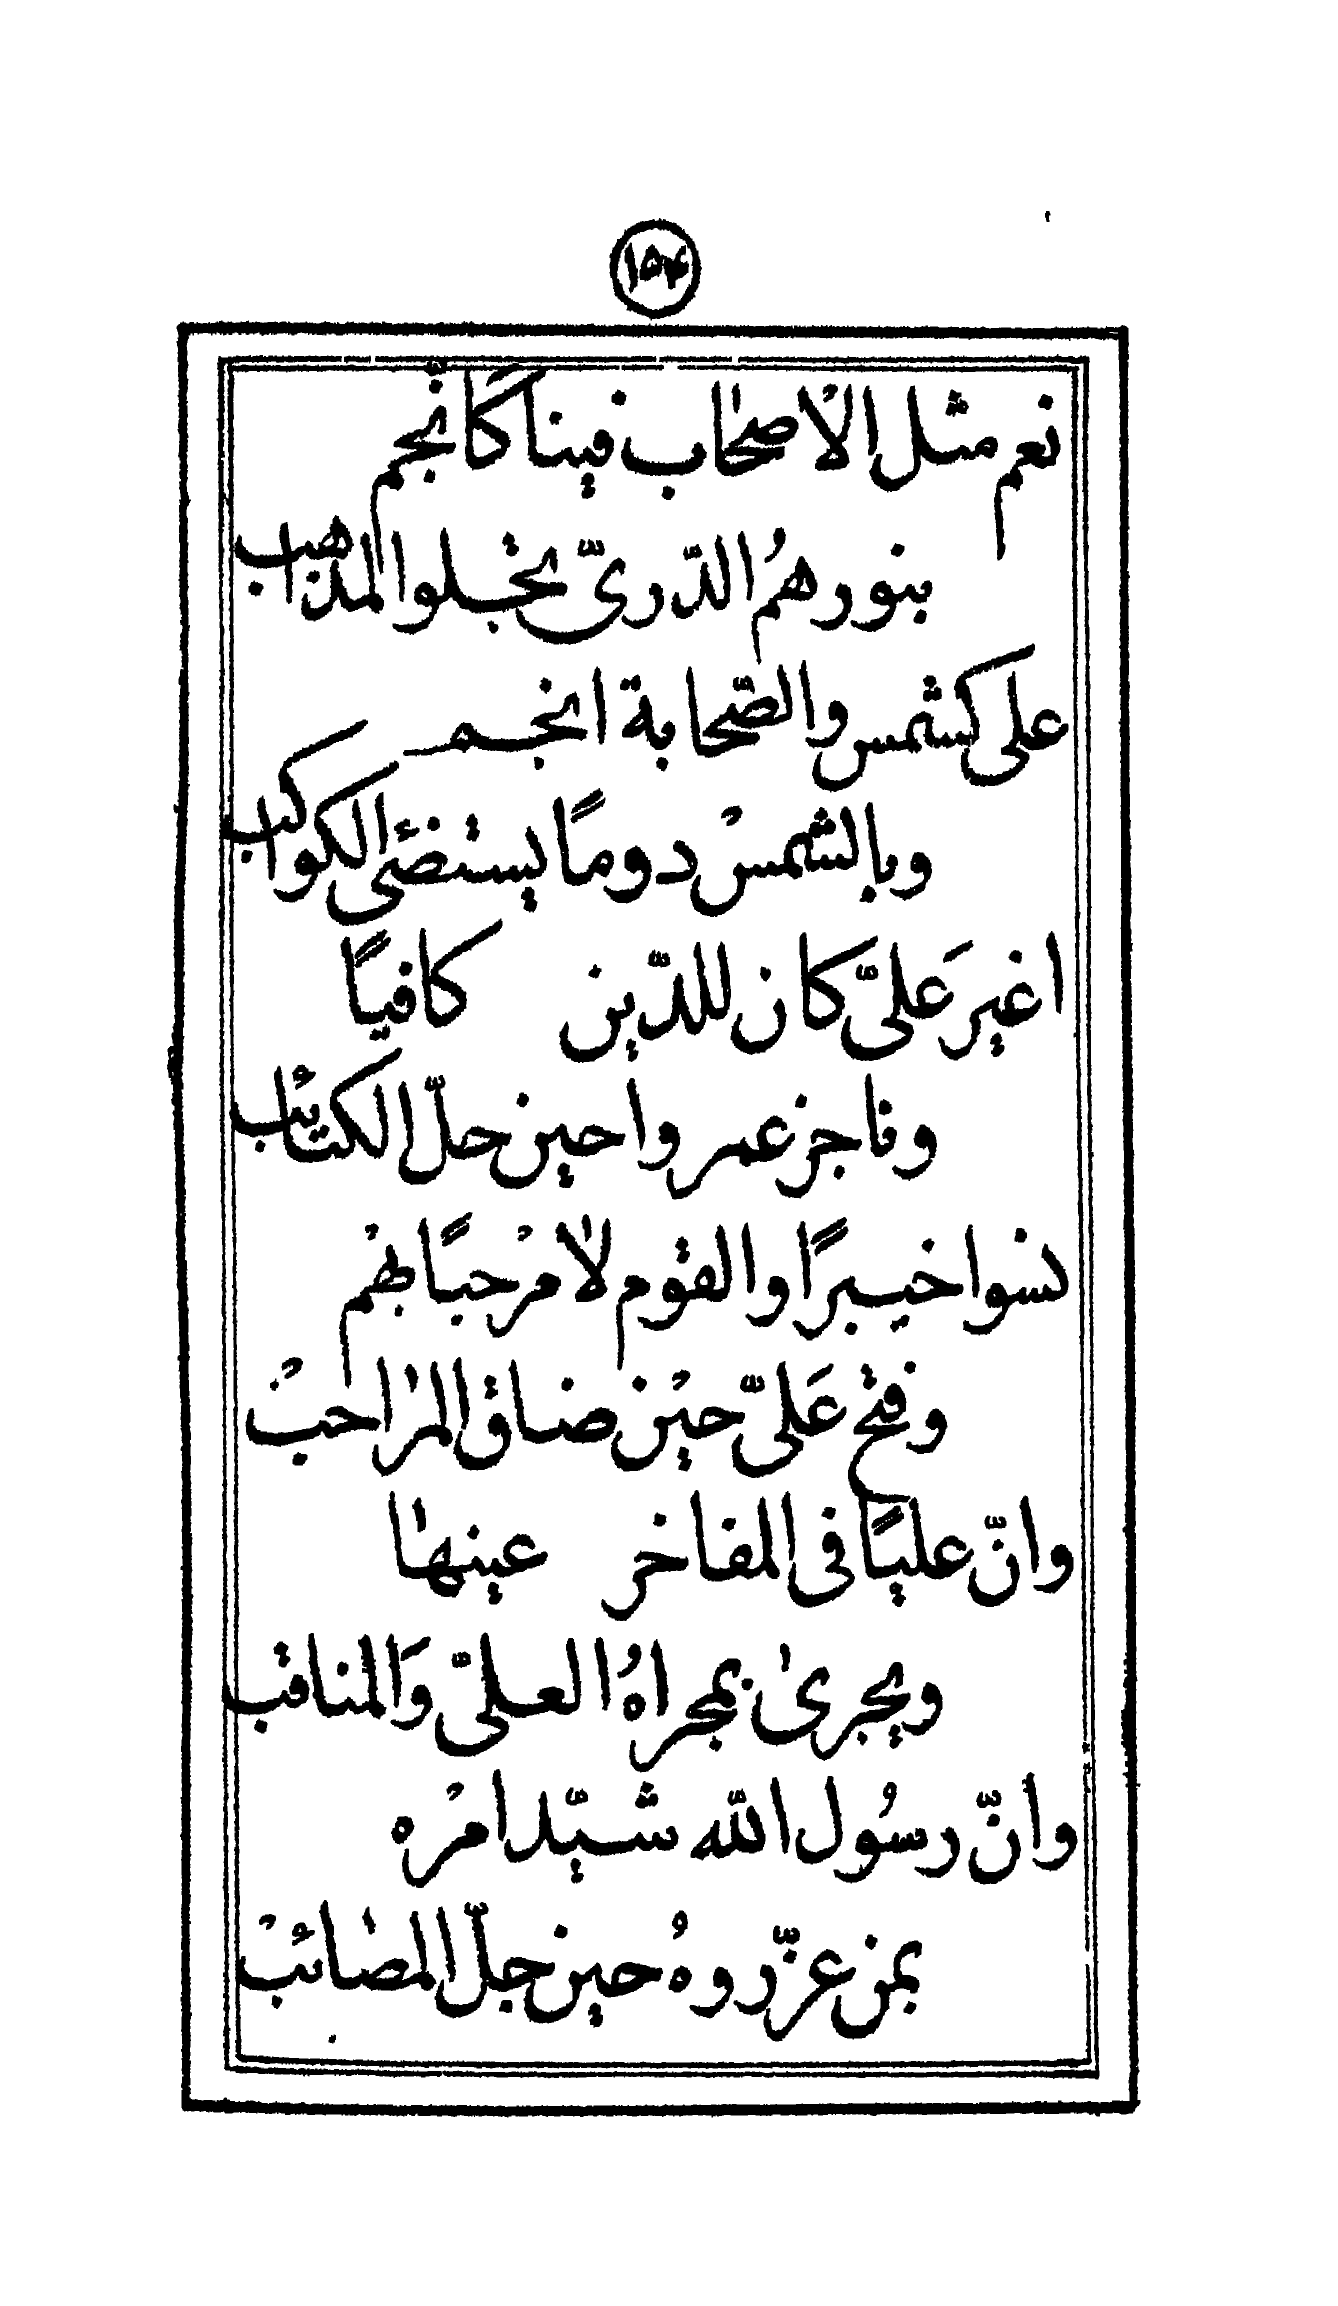 ۱۵۴
نعم مثل الاصحاب فینا كأنجم
بنورهمُ الدّریّ یخلوا لمذاهب
علی كشمس والصّحابة انجم
وبالشمسْ دومًا یستضئی الكواكب
اغیرَ عَلیَّ كان للدّین كافیًا
وناجز عمروا حین حلّ الكتائب
نسوا خیبرًا والقوم لا مرْحبًا بهمْ
وفتح عَلیّ حینْ ضاق المراحبْ
وانّ علیًا فی المفاخر عینها
ویجری بمجراهُ العلیّ وَالمناقب
وانّ رسُول الله شیّد امرْه
بمن عزّروهُ حین جلّ المصائبْ